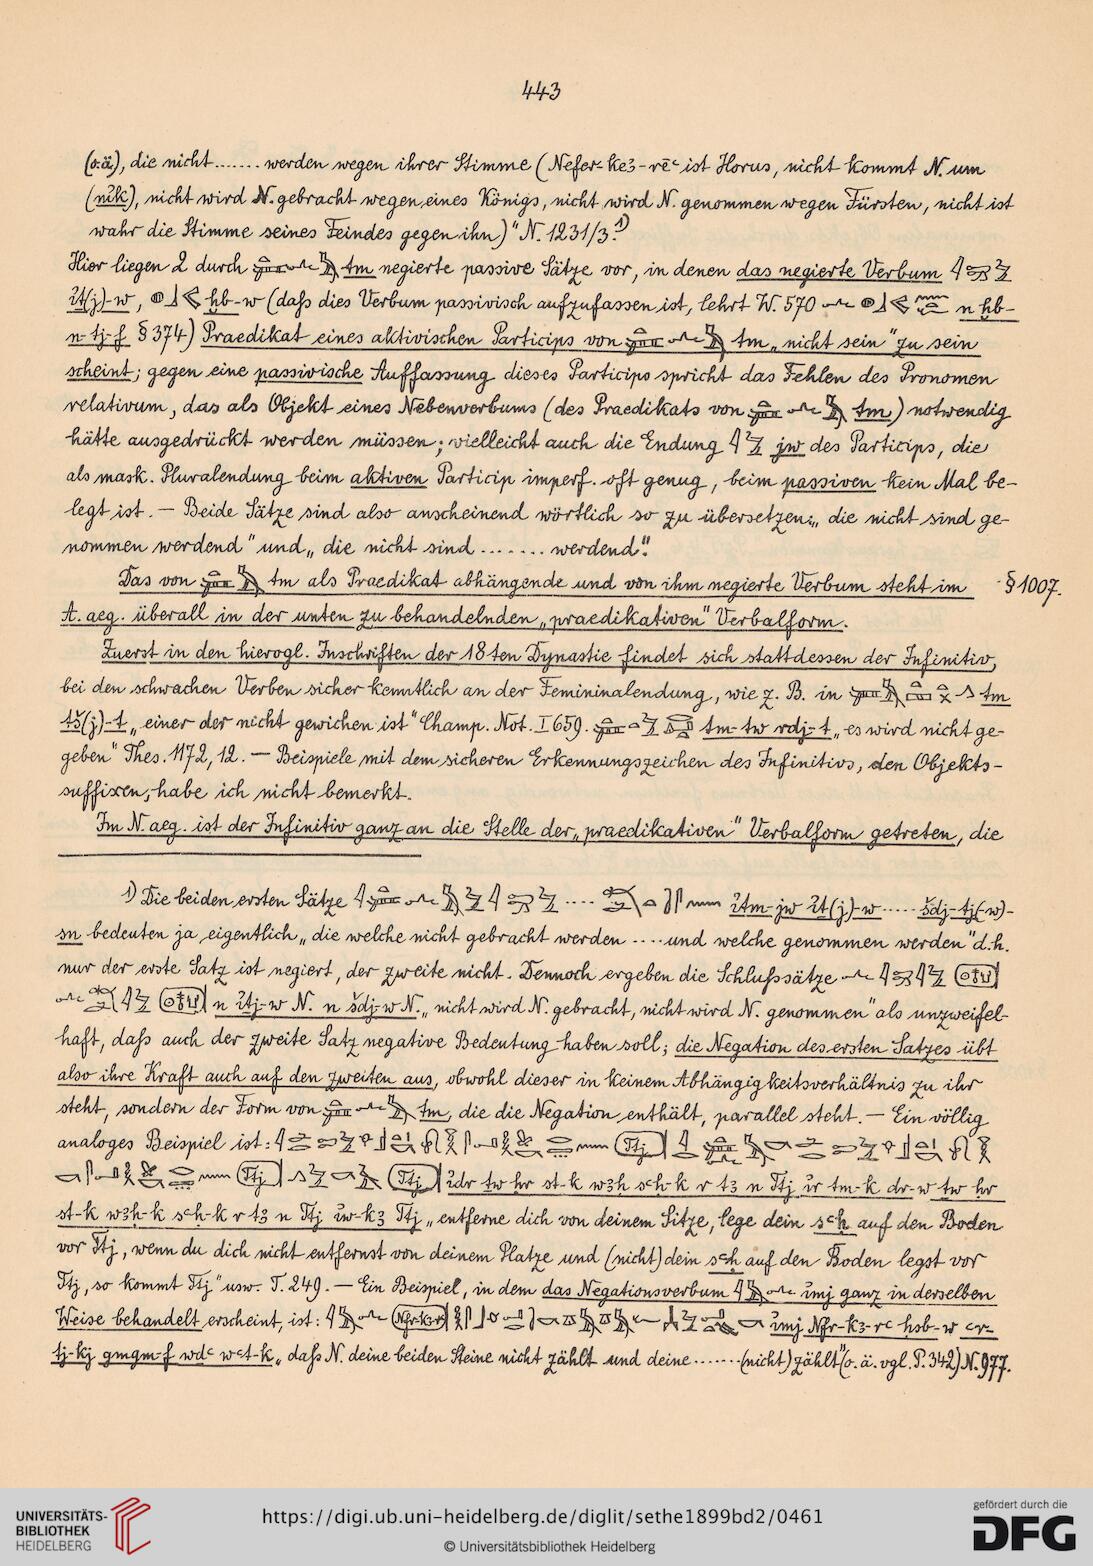 443
(o.ä), die nicht....... werden wegen ihrer Stimme (Nefer-ke3-rēꜥ ist Horus, nicht kommt N. um
(nꝫk), nicht wird N. gebracht wegen eines Königs, nicht wird N. genommen wegen Fürsten, nicht ist
wahr die Stimme seines Feindes gegen ihn)" N. 1231/3.¹)
Hier liegen 2 durch tm negierte passive Sätze vor, in denen das negierte Verbum
ꝫt(j)-w, ḫb-w (daß dies Verbum passivisch aufzufassen ist, lehrt W. 570 n ḫb-
n-tj-f § 374) Praedikat eines aktivischen Particips von tm „nicht sein" zu sein
scheint; gegen eine passivische Auffassung dieses Particips spricht das Fehlen des Pronomen
relativum, das als Objekt eines Nebenverbums (des Praedikats von tm) notwendig
hätte ausgedrückt werden müssen; vielleicht auch die Endung jw des Particips, die
als mask. Pluralendung beim aktiven Particip imperf. oft genug, beim passiven kein Mal be-
legt ist. — Beide Sätze sind also anscheinend wörtlich so zu übersetzen: „die nicht sind ge-
nommen werdend" und „die nicht sind ....... werdend".
Das von tm als Praedikat abhängende und von ihm negierte Verbum steht im § 1007.
A. aeg. überall in der unten zu behandelnden „praedikativen" Verbalform.
Zuerst in den hierogl. Inschriften der 18ten Dynastie findet sich stattdessen der Infinitiv,
bei den schwachen Verben sicher kenntlich an der Femininalendung, wie z. B. in tm
tš(j)-t „einer der nicht gewichen ist" Champ. Not. I 659. tm-tw rdj-t „es wird nicht ge-
geben" Thes. 1172, 12. — Beispiele mit dem sicheren Erkennungszeichen des Infinitivs, den Objekts-
suffixen, habe ich nicht bemerkt.
Im N. aeg. ist der Infinitiv ganz an die Stelle der „praedikativen" Verbalform getreten, die
1) Die beiden ersten Sätze ..... ꝫtm-jw ꝫt(j)-w ..... šdj-tj(-w)-
sn bedeuten ja eigentlich „die welche nicht gebracht werden .... und welche genommen werden" d.h.
nur der erste Satz ist negiert, der zweite nicht. Dennoch ergeben die Schlußsätze
n ꝫtj-w N. n šdj-w N. „nicht wird N. gebracht, nicht wird N. genommen" als unzweifel-
haft, daß auch der zweite Satz negative Bedeutung haben soll; die Negation des ersten Satzes übt
also ihre Kraft auch auf den zweiten aus, obwohl dieser in keinem Abhängigkeitsverhältnis zu ihr
steht, sondern der Form von tm, die die Negation enthält, parallel steht. — Ein völlig
analoges Beispiel ist:
ꝫdr tw ḥr st-k w3ḥ sꜥḥ-k r t3 n Ttj ꝫr tm-k dr-w tw ḥr
st-k w3ḥ-k sꜥḥ-k r t3 n Ttj ꝫw-k3 Ttj „entferne dich von deinem Sitze, lege dein sꜥḥ auf den Boden
vor Ttj, wenn du dich nicht entfernst von deinem Platze und (nicht) dein sꜥḥ auf den Boden legst vor
Ttj, so kommt Ttj" usw. T. 249. — Ein Beispiel, in dem das Negationsverbum ꝫmj ganz in derselben
Weise behandelt erscheint, ist: ꝫmj Nfr-k3-rꜥ ḥsb-w ꜥr-
tj-kj gmgm-f wdꜥ wꜥt-k „daß N. deine beiden Steine nicht zählt und deine ....... (nicht) zählt" (o. ä. vgl. P. 342) N. 977.
UNIVERSITÄTS-
BIBLIOTHEK
HEIDELBERG
https://digi.ub.uni-heidelberg.de/diglit/sethe1899bd2/0461
© Universitätsbibliothek Heidelberg
gefördert durch die
DFG